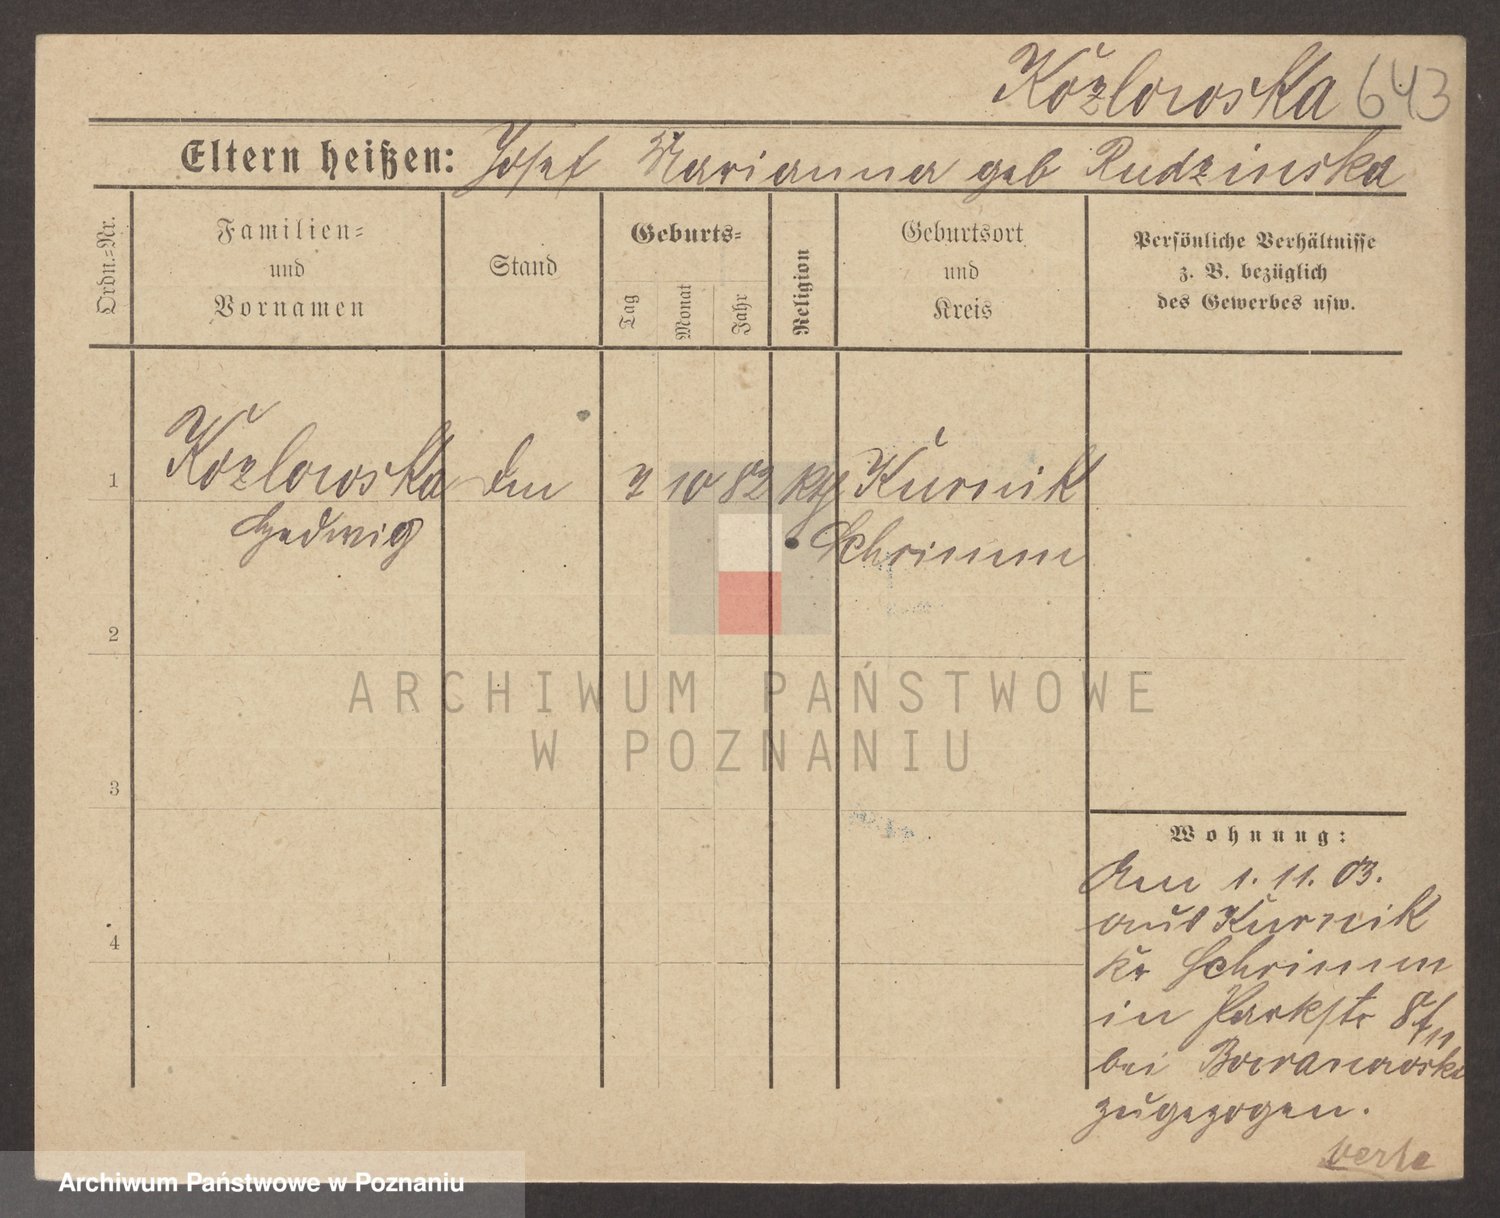 Kozlowska 643
Eltern heißen: Josef Marianna geb Rudzinska
Ordn.-Nr.
Familien-
und
Vornamen
Stand
Geburts-
Tag
Monat
Jahr
Religion
Geburtsort
und
Kreis
Persönliche Verhältnisse
z. B. bezüglich
des Gewerbes usw.
1 Kozlowska 10 82 kth Kurnik
Hedwig Schrimm
2
3
4
ARCHIWUM PAŃSTWOWE
W POZNANIU
Wohnung:
Am 1. 11. 03.
aus Kurnik
Kr Schrimm
in Parkstr 8
bei
zugezogen.
verte
Archiwum Państwowe w Poznaniu